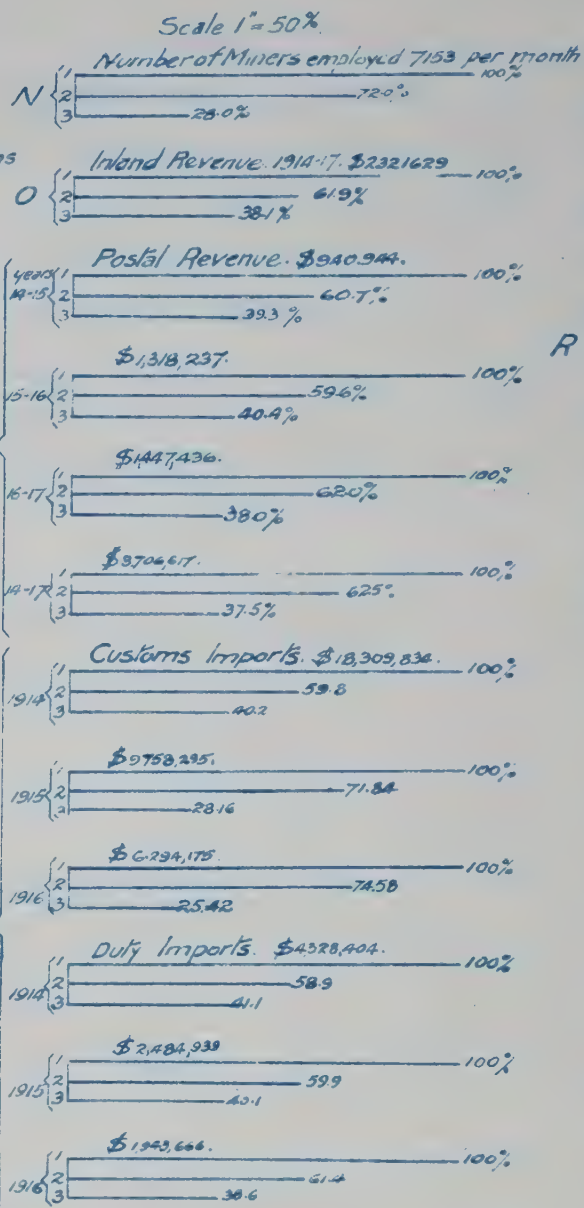 Scale 1" = 50%
Number of Miners employed 7153 per month
1 100%
N 2 72.0%
3 28.0%
ns
Inland Revenue. 1914-17. $2321629
1 100%
O 2 61.9%
3 38.1%
Postal Revenue. $940,944.
years 1 100%
14-15 2 60.7%
3 39.3%
R
$1,318,237.
1 100%
15-16 2 59.6%
3 40.4%
$1447,436.
1 100%
16-17 2 62.0%
3 38.0%
$3,706,617.
1 100%
14-17 2 62.5%
3 37.5%
Customs Imports. $18,309,834.
1 100%
1914 2 59.8
3 40.2
$9758,295.
1 100%
1915 2 71.84
3 28.16
$6,294,175.
1 100%
1916 2 74.58
3 25.42
Duty Imports. $4328,404.
1 100%
1914 2 58.9
3 41.1
$2,484,939
1 100%
1915 2 59.9
3 40.1
$1,943,666.
1 100%
1916 2 61.4
3 38.6